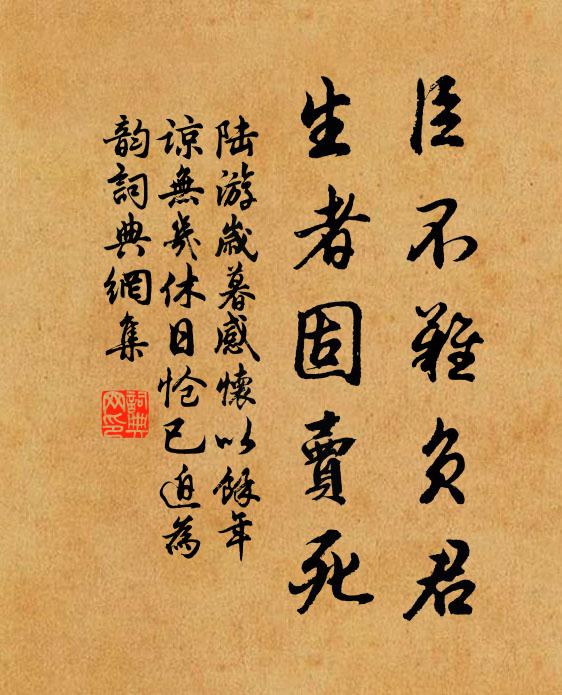 臣不難負君
生者固賣死
陸游歲暮感懷以餘年
諒無幾休日愴已迫為
韵詞典網集
詞典
网印